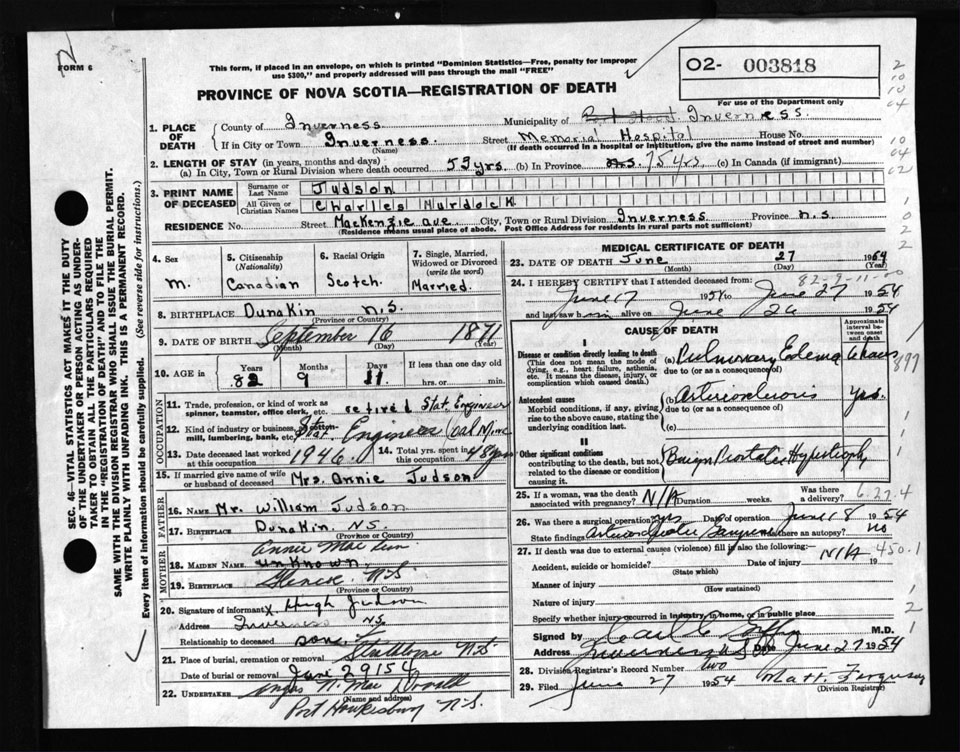 N
FORM 6
This form, if placed in an envelope, on which is printed "Dominion Statistics—Free, penalty for improper
use $300," and properly addressed will pass through the mail "FREE"
O2- 003818
PROVINCE OF NOVA SCOTIA—REGISTRATION OF DEATH
For use of the Department only
1. PLACE OF DEATH
County of Inverness Municipality of Port Hood. Inverness.
If in City or Town Inverness. (Name) Street Memorial Hospital House No.
(If death occurred in a hospital or institution, give the name instead of street and number)
2. LENGTH OF STAY (in years, months and days)
(a) In City, Town or Rural Division where death occurred 55 yrs. (b) In Province 75 yrs. (c) In Canada (if immigrant)
3. PRINT NAME OF DECEASED
Surname or Last Name Judson
All Given or Christian Names Charlles Murdock
RESIDENCE No. Street MacKenzie ave. City, Town or Rural Division Inverness Province n.s.
(Residence means usual place of abode. Post Office Address for residents in rural parts not sufficient)
4. Sex M.
5. Citizenship (Nationality) Canadian
6. Racial Origin Scotch.
7. Single, Married, Widowed or Divorced (write the word) Married.
8. BIRTHPLACE Dunakin n.s.
(Province or Country)
9. DATE OF BIRTH September 16 1871
(Month) (Day) (Year)
10. AGE in Years 82 Months 9 Days 11 If less than one day old
hrs. or min.
OCCUPATION
11. Trade, profession, or kind of work as
spinner, teamster, office clerk, etc. retired Stat. Engineer
12. Kind of industry or business,
mill, lumbering, bank, etc. Stat. Engineer Coal Mine
13. Date deceased last worked at this occupation 1946.
14. Total yrs. spent in this occupation 48 yrs
15. If married give name of wife or husband of deceased Mrs. Annie Judson
FATHER
16. Name Mr. William Judson
17. Birthplace Dunakin. N.S.
(Province or Country)
MOTHER
18. Maiden Name unknown
19. Birthplace N.S.
(Province or Country)
20. Signature of informant x Hugh Judson
Address Inverness N.S.
Relationship to deceased son.
21. Place of burial, cremation or removal N.S.
Date of burial or removal June 29 1954
22. UNDERTAKER Angus
(Name and address)
Port Hawkesbury N.S.
MEDICAL CERTIFICATE OF DEATH
23. DATE OF DEATH June 27 1954
(Month) (Day) (Year)
82-9-11
24. I HEREBY CERTIFY that I attended deceased from:
June 17 1954 to June 27 1954
and last saw him alive on June 26 1954
CAUSE OF DEATH
Approximate interval between onset and death
I
Disease or condition directly leading to death
(This does not mean the mode of dying, e.g., heart failure, asthenia, etc. It means the disease, injury, or complication which caused death.)
(a) Pulmonary Edema 6 hours
due to (or as a consequence of)
Antecedent causes
Morbid conditions, if any, giving rise to the above cause, stating the underlying condition last.
(b) Arteriosclerosis yrs.
due to (or as a consequence of)
(c)
II
Other significant conditions
contributing to the death, but not related to the disease or condition causing it.
Benign Prostatic Hypertrophy
25. If a woman, was the death associated with pregnancy? N/A Duration weeks. Was there a delivery?
6-27-4
26. Was there a surgical operation? yes Date of operation June 18 1954
State findings Was there an autopsy? no
27. If death was due to external causes (violence) fill in also the following: N/A 450.1
Accident, suicide or homicide? Date of injury 19
(State which)
Manner of injury
(How sustained)
Nature of injury
Specify whether injury occurred in industry, in home, or in public place
Signed by M.D.
Address Inverness N.S. Date June 27 1954
28. Division Registrar's Record Number two
29. Filed June 27 1954 Matt. Ferguson
(Division Registrar)
SEC. 46—VITAL STATISTICS ACT MAKES IT THE DUTY
OF THE UNDERTAKER OR PERSON ACTING AS UNDER-
TAKER TO OBTAIN ALL THE PARTICULARS REQUIRED
IN THE "REGISTRATION OF DEATH" AND TO FILE THE
SAME WITH THE DIVISION REGISTRAR WHO SHALL ISSUE THE BURIAL PERMIT.
WRITE PLAINLY WITH UNFADING INK. THIS IS A PERMANENT RECORD.
Every item of information should be carefully supplied. (See reverse side for instructions.)